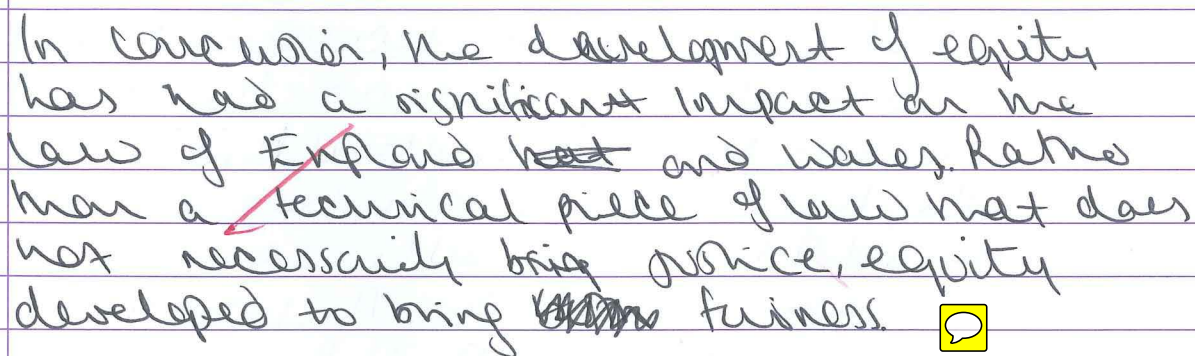 In conclusion, the development of equity
has had a significant impact on the
law of England and Wales. Rather
than a technical piece of law that does
not necessarily bring justice, equity
developed to bring fairness.